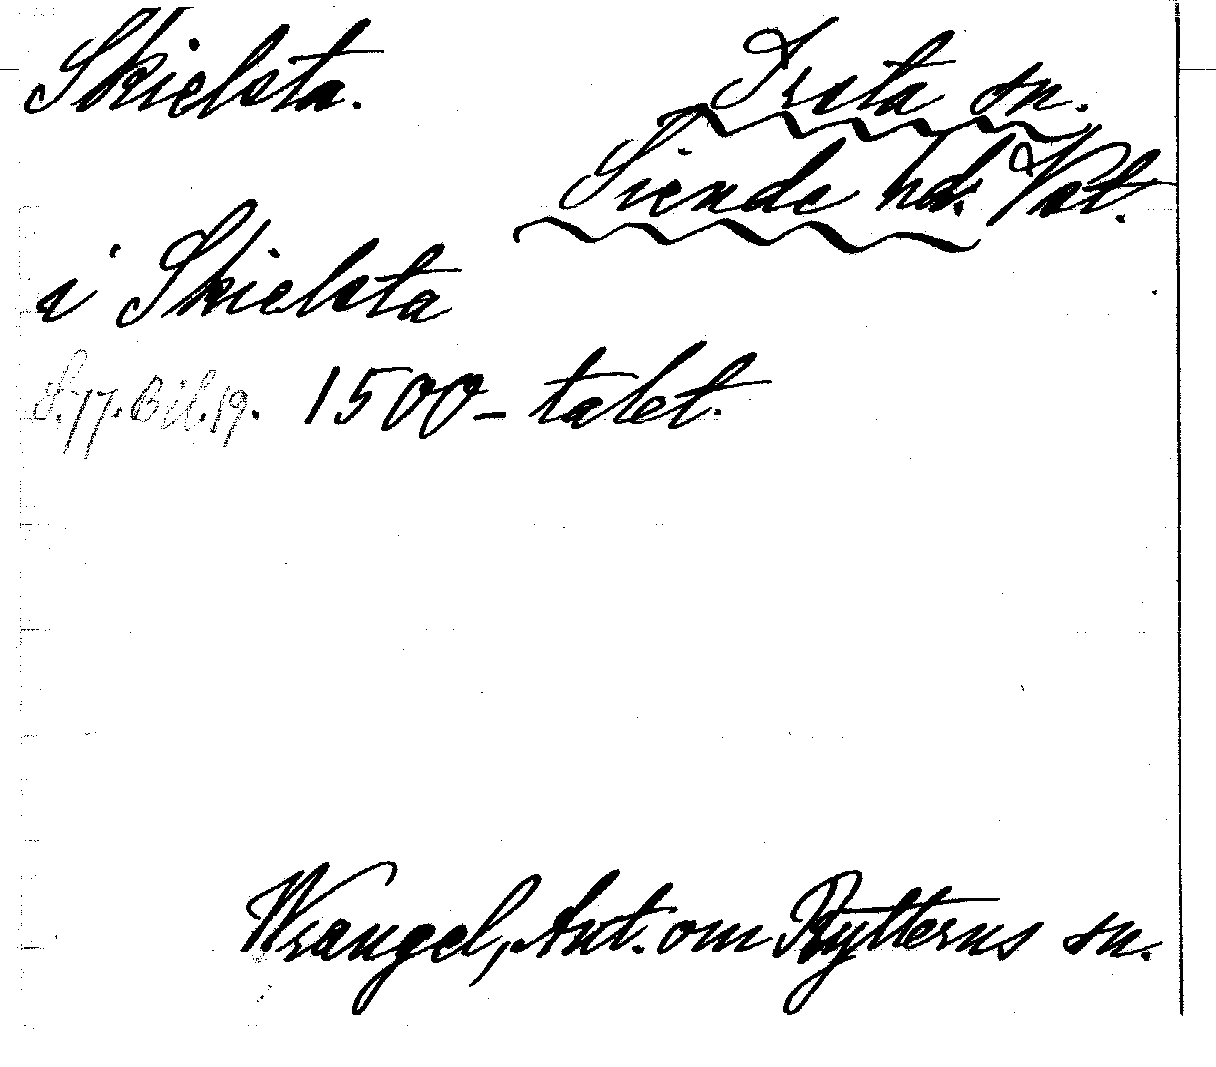 Skielsta.
Irsta sn.
Siende hd. Vstl.
i Skielsta
S.77. Bil.19. 1500-talet.
Wrangel, Ant. om Rytterns sn.